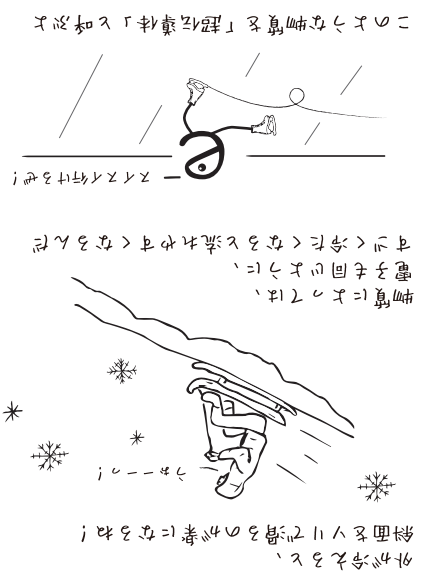 外が冷えると、
斜面をソリで滑るのが楽になるね!
うぉーーっ!
物質によっては、
電子も同じように、
すごく冷たくなると流れやすくなるんだ
スイスイ行けるぜ!
このような物質を「超伝導体」と呼ぶよ